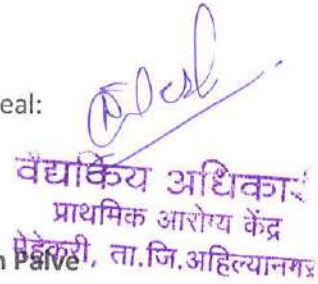 eal:
वैद्यकिय अधिकारी
प्राथमिक आरोग्य केंद्र
ता.जि.अहिल्यानगर
Palve